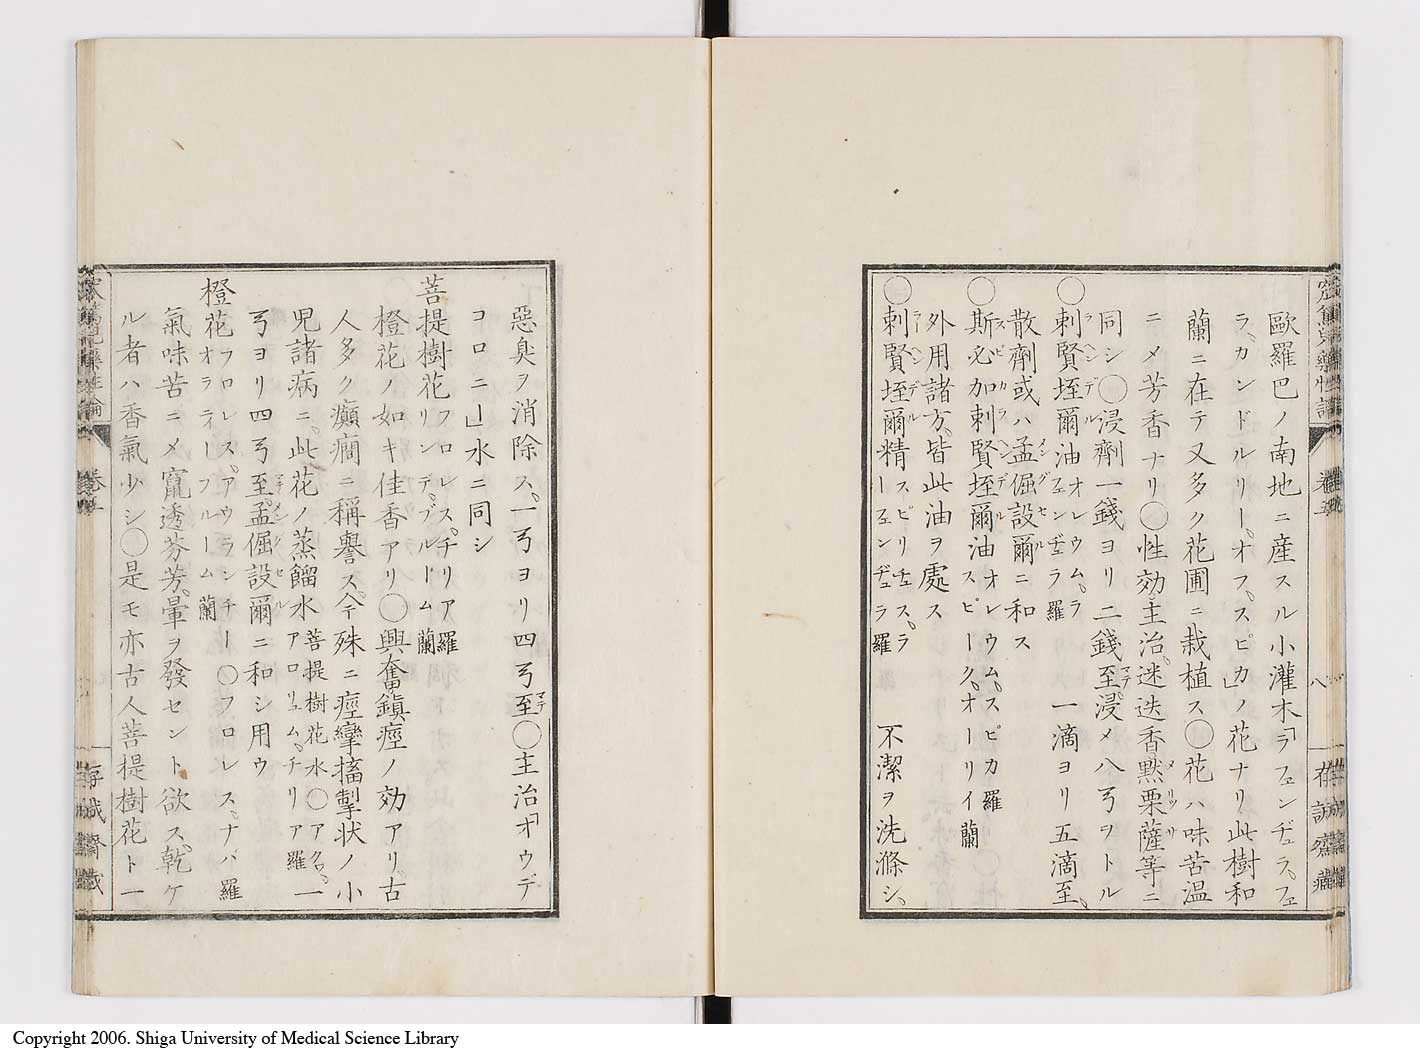 歐羅巴ノ南地ニ産スル小灌木「ラフェンデュラ、フェ
ラ、カンドルリー、オフ、スピカ」ノ花ナリ此樹和
蘭ニ在テ又多ク花圃ニ栽植ス〇花ハ味苦温
ニメ芳香ナリ〇性効主治迷迭香黙栗薩等ニ
同シ〇浸劑一錢ヨリ二錢至浸メ八弓ヲトル
〇刺賢垤爾油オレウム、ラフェンデュラ羅 一滴ヨリ五滴至
散劑或ハ孟倔設爾ニ和ス
〇斯必加刺賢垤爾油オレウム、スピカ羅スピーク、オーリイ蘭
外用諸方皆此油ヲ處ス
〇刺賢垤爾精スピリチュス、ラーフェンデュラ羅 不潔ヲ洗滌シ
惡臭ヲ消除ス、一弓ヨリ四弓至〇主治「オウデ
コロニ」水ニ同シ
菩提樹花フロレス、チリア羅リンデ、ブルーム蘭
橙花ノ如キ佳香アリ〇興奮鎮痙ノ効アリ、古
人多ク癲癇ニ稱譽ス、今殊ニ痙攣搐掣状ノ小
児諸病ニ、此花ノ蒸餾水菩提樹花水〇アクア、アロリュム、チリア羅一
弓ヨリ四弓至孟倔設爾ニ和シ用ウ
橙花フロレス、アウランチー〇フロレス、ナバ羅オラティーフルーム蘭
氣味苦ニメ竄透芬芳暈ヲ發セント欲ス、乾ケ
ル者ハ香氣少シ〇是モ亦古人菩提樹花ト一
卷五
八
存誠齋藏
卷五
存誠齋藏
Copyright 2006. Shiga University of Medical Science Library